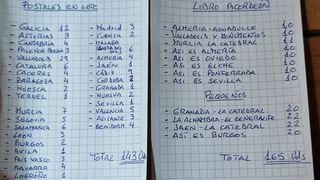 POSTALES EN LOTE
- GALICIA 12
- ASTURIAS 3
- CANTABRIA 4
- VALLADOLID 29
- CATALUÑA 5
- CACERES 4
- ZARAGOZA 4
- HUESCA 2
- TERUEL 1
- MURCIA 7
- SEGOVIA 5
- SALAMANCA 6
- LEON 3
- BURGOS 2
- AVILA 1
- PAIS VASCO 3
- NAVARRA 4
- LOGROÑO 1
- MADRID 3
- CUENCA 2
- MALAGA
- ALMERIA 4
- JAEN 1
- CADIZ 9
- CORDOBA 2
- GRANADA 1
- HUELVA 2
- SEVILLA 1
- VALENCIA 5
- ALICANTE 3
- BENIDORM 4
TOTAL 143 Uds
LIBRO ACORDEON
- ALMERIA - AGUADULCE 10
- VALLADOLID Y MONUMENTOS 10
- MURCIA, LA CATEDRAL 11
- ASI ES ALMERIA 10
- ASI ES OVIEDO 10
- ASI ES ELCHE 10
- ASI ES PONFERRADA 10
- ASI ES SEVILLA 10
PEQUEÑOS
- GRANADA - LA CATEDRAL 22
- LA ALHAMBRA - EL GENERALIFE 20
- JAEN - LA CATEDRAL 22
- ASI ES BURGOS 20
TOTAL 165 Uds